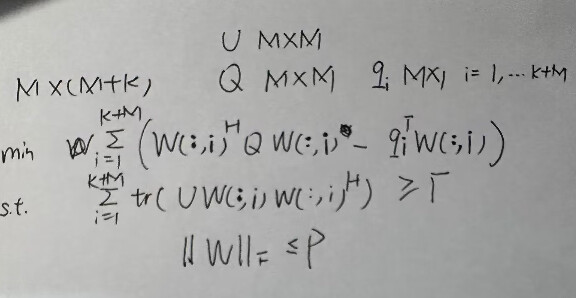 U M×M
M×(M+K) Q M×M q_i M×1 i=1,...K+M
min W Σ_{i=1}^{K+M} (W(:,i)^H Q W(:,i) - q_i^T W(:,i))
s.t. Σ_{i=1}^{K+M} tr(U W(:,i) W(:,i)^H) ≥ Γ
||W||_F ≤ P